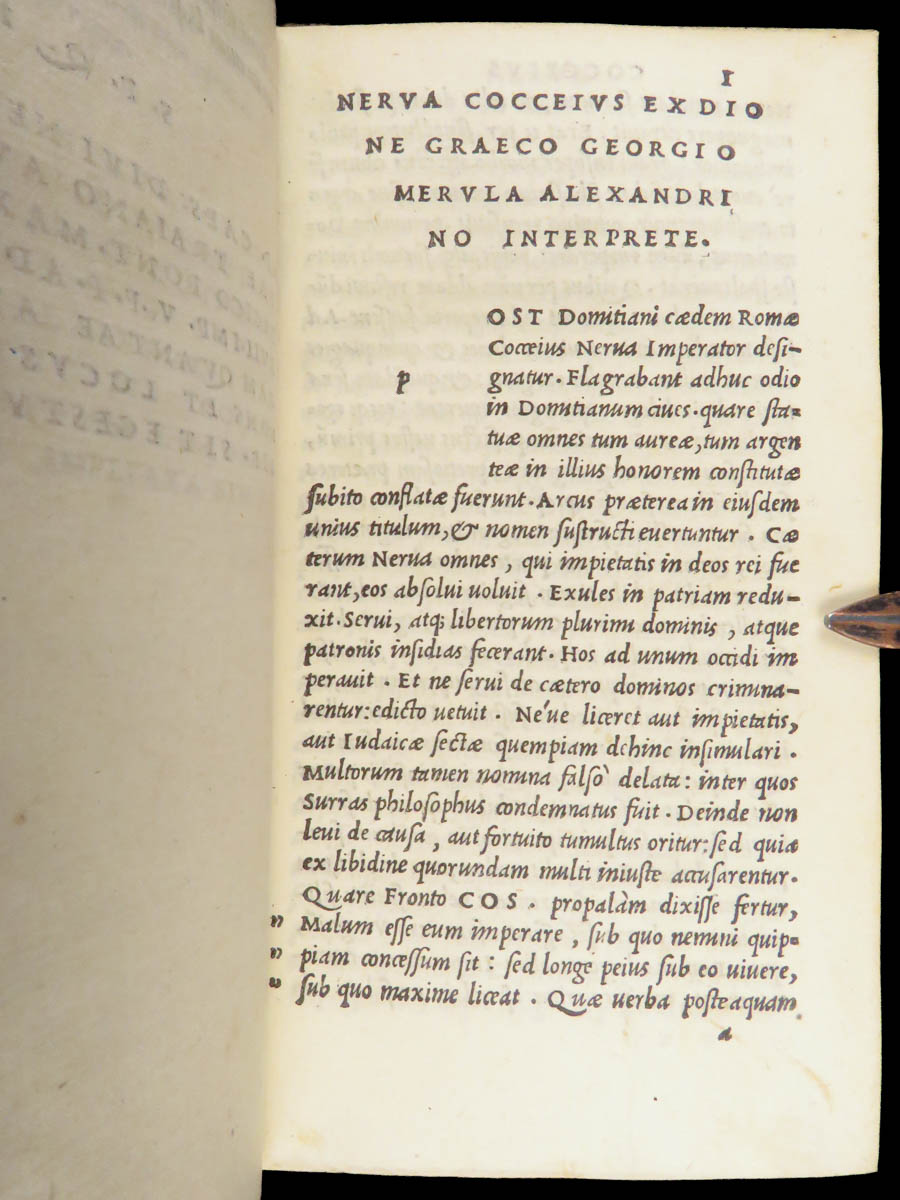 1
NERVA COCCEIVS EX DIO
NE GRAECO GEORGIO
MERVLA ALEXANDRI
NO INTERPRETE.
p
OST Domitiani cædem Romæ
Cocceius Nerua Imperator desi-
gnatur. Flagrabant adhuc odio
in Domitianum ciues. quare sta-
tuæ omnes tum aureæ, tum argen
teæ in illius honorem constitutæ
subito conflatæ fuerunt. Arcus præterea in eiusdem
unius titulum, & nomen sustructi euertuntur. Cæ
terum Nerua omnes, qui impietatis in deos rei fue
rant, eos absolui uoluit. Exules in patriam redu-
xit. Serui, atq; libertorum plurimi dominis, atque
patronis insidias fecerant. Hos ad unum occidi im
perauit. Et ne serui de cætero dominos crimina-
rentur: edicto uetuit. Né ue liceret aut impietatis,
aut Iudaicæ sectæ quempiam dehinc insimulari.
Multorum tamen nomina falsò delata: inter quos
Surras philosophus condemnatus fuit. Deinde non
leui de causa, aut fortuito tumultus oritur: sed quia
ex libidine quorundam multi iniuste accusarentur.
Quare Fronto COS. propalàm dixisse fertur,
" Malum esse eum imperare, sub quo nemini quip-
" piam concessum sit: sed longe peius sub eo uiuere,
" sub quo maxime liceat. Quæ uerba posteaquam
a